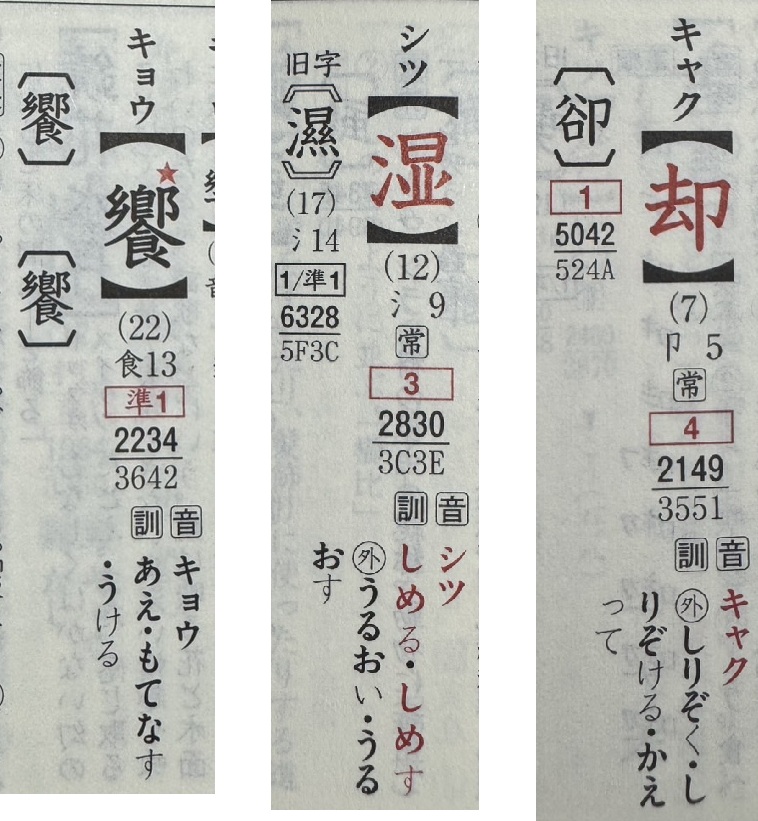 キョウ
【饗】
★
(22)
食13
準1
2234
3642
音
キョウ
訓
あえ・もてなす
・うける
〔饗〕
〔饗〕
シツ
【湿】
(12)
氵 9
常
3
2830
3C3E
音
シツ
訓
しめる・しめす
外うるおい・うる
おす
旧字
〔濕〕
(17)
氵14
1/準1
6328
5F3C
キャク
【却】
(7)
卩 5
常
4
2149
3551
音
キャク
訓
外しりぞく・し
りぞける・かえ
って
〔卻〕
1
5042
524A